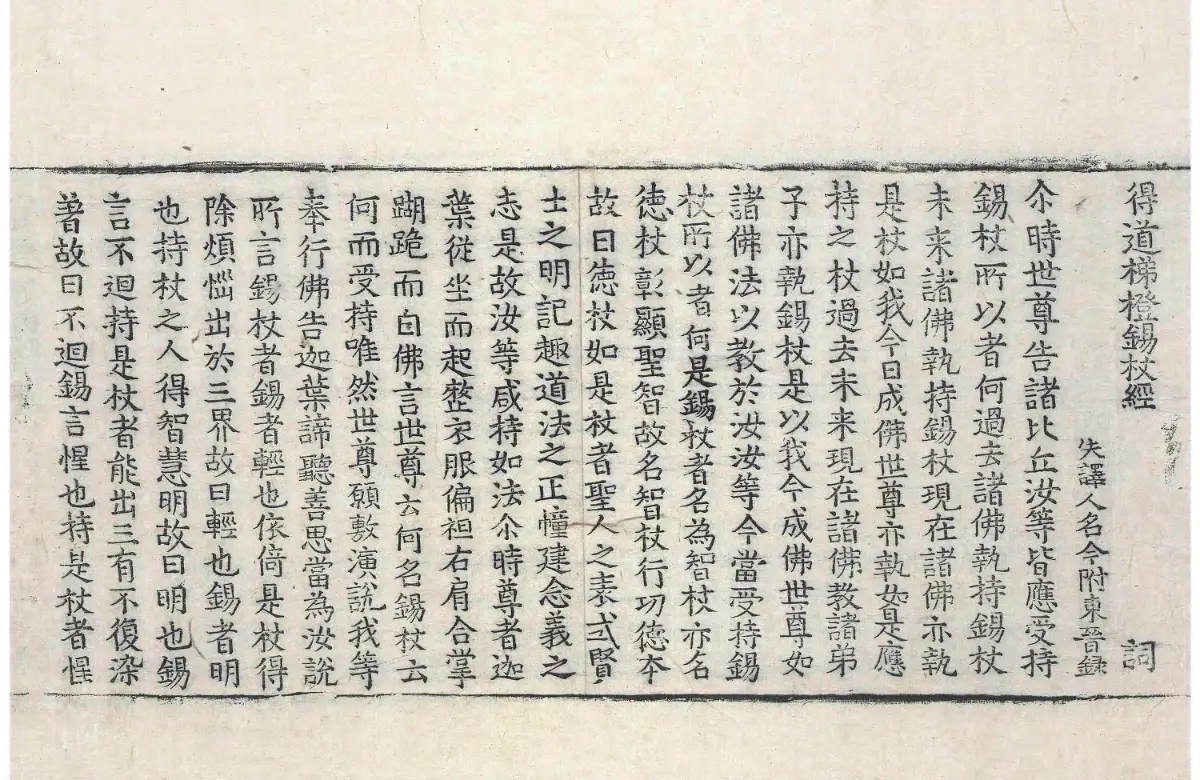 得道梯橙錫杖經 詞
失譯人名今附東晉錄
尒時世尊告諸比丘汝等皆應受持
錫杖所以者何過去諸佛執持錫杖
未来諸佛執持錫杖現在諸佛亦執
是杖如我今日成佛世尊亦執如是應
持之杖過去未来現在諸佛教諸弟
子亦執錫杖是以我今成佛世尊如
諸佛法以教於汝汝等今當受持錫
杖所以者何是錫杖者名為智杖亦名
徳杖彰顯聖智故名智杖行功徳夲
故曰徳杖如是杖者聖人之表式賢
士之明記趣道法之正幢建念義之
志是故汝等咸持如法尒時尊者迦
葉従坐而起整衣服偏袒右肩合掌
䠒跪而白佛言世尊云何名錫杖云
何而受持唯然世尊願敷演說我等
奉行佛告迦葉諦聽善思當為汝說
所言錫杖者錫者輕也依倚是杖得
除煩惱出於三界故曰輕也錫者明
也持杖之人得智慧明故曰明也錫
言不迴持是杖者能出三有不復染
著故曰不迴錫言惺也持是杖者惺